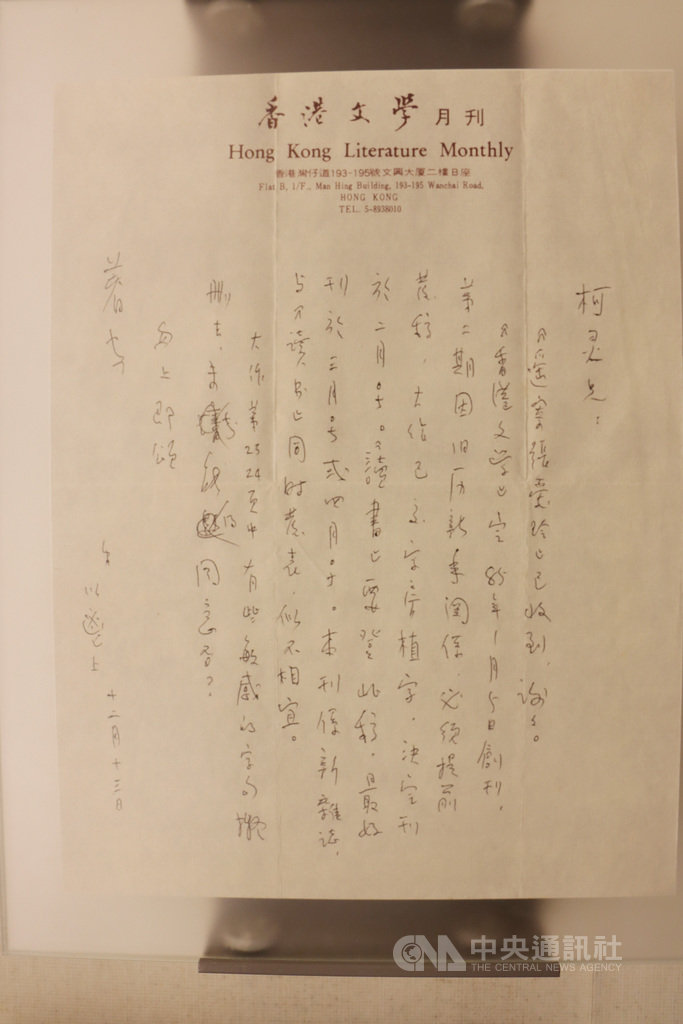 香港文學月刊
Hong Kong Literature Monthly
香港灣仔道193-195號文興大廈二樓B座
Flat B, 1/F., Man Hing Building, 193-195 Wanchai Road,
HONG KONG
TEL. 5-8938010
柯灵兄：
《遥寄張愛玲》已收到，謝々。
《香港文学》定85年1月5日創刊，
第二期因旧历新年関係，必須提前
發稿，大作已交字房植字，決定刊
於二月号。《讀書》要登此稿，最好
刊於三月号或四月号。本刊係新雜誌，
与《读书》同时發表，似不相宜。
大作第23 24页中有些敏感的字句擬
删去，未 同意否？
匆上即頌
著安
弟 以鬯上 十二月十三日
中央通訊社
THE CENTRAL NEWS AGENCY